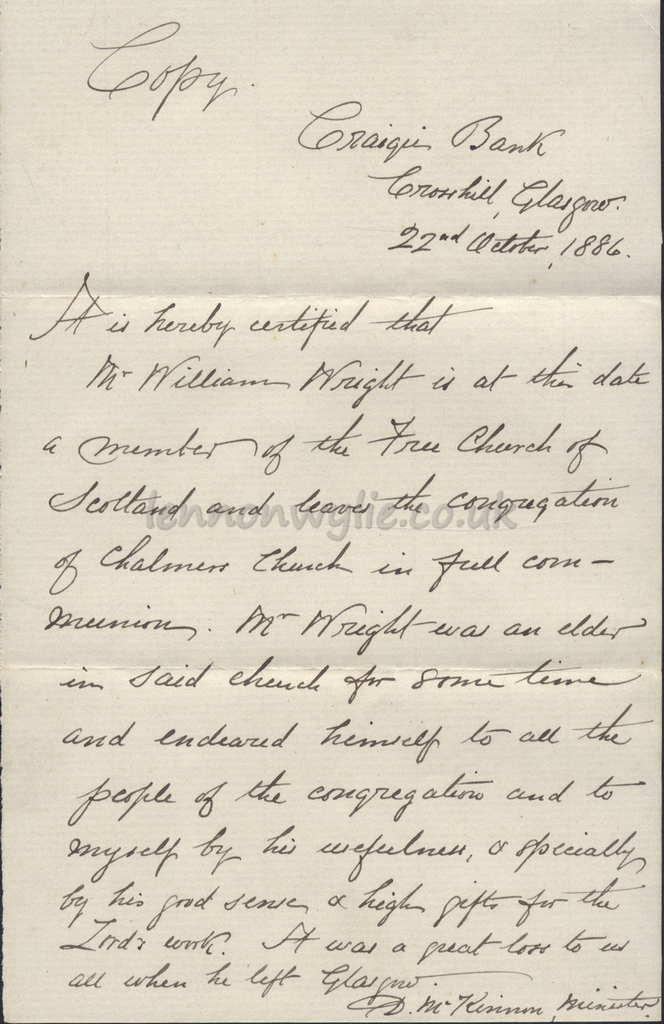 Copy.
Craigie Bank
Crosshill, Glasgow.
22nd October, 1886.
It is hereby certified that
Mr William Wright is at this date
a member of the Free Church of
Scotland and leaves the congregation
lennonwylie.co.uk
of Chalmers Church in full com-
munion. Mr Wright was an elder
in said church for some time
and endeared himself to all the
people of the congregation and to
myself by his usefulness, & specially
by his good sense & high gifts for the
Lord's work. It was a great loss to us
all when he left Glasgow.
D. McKinnon, Minister.